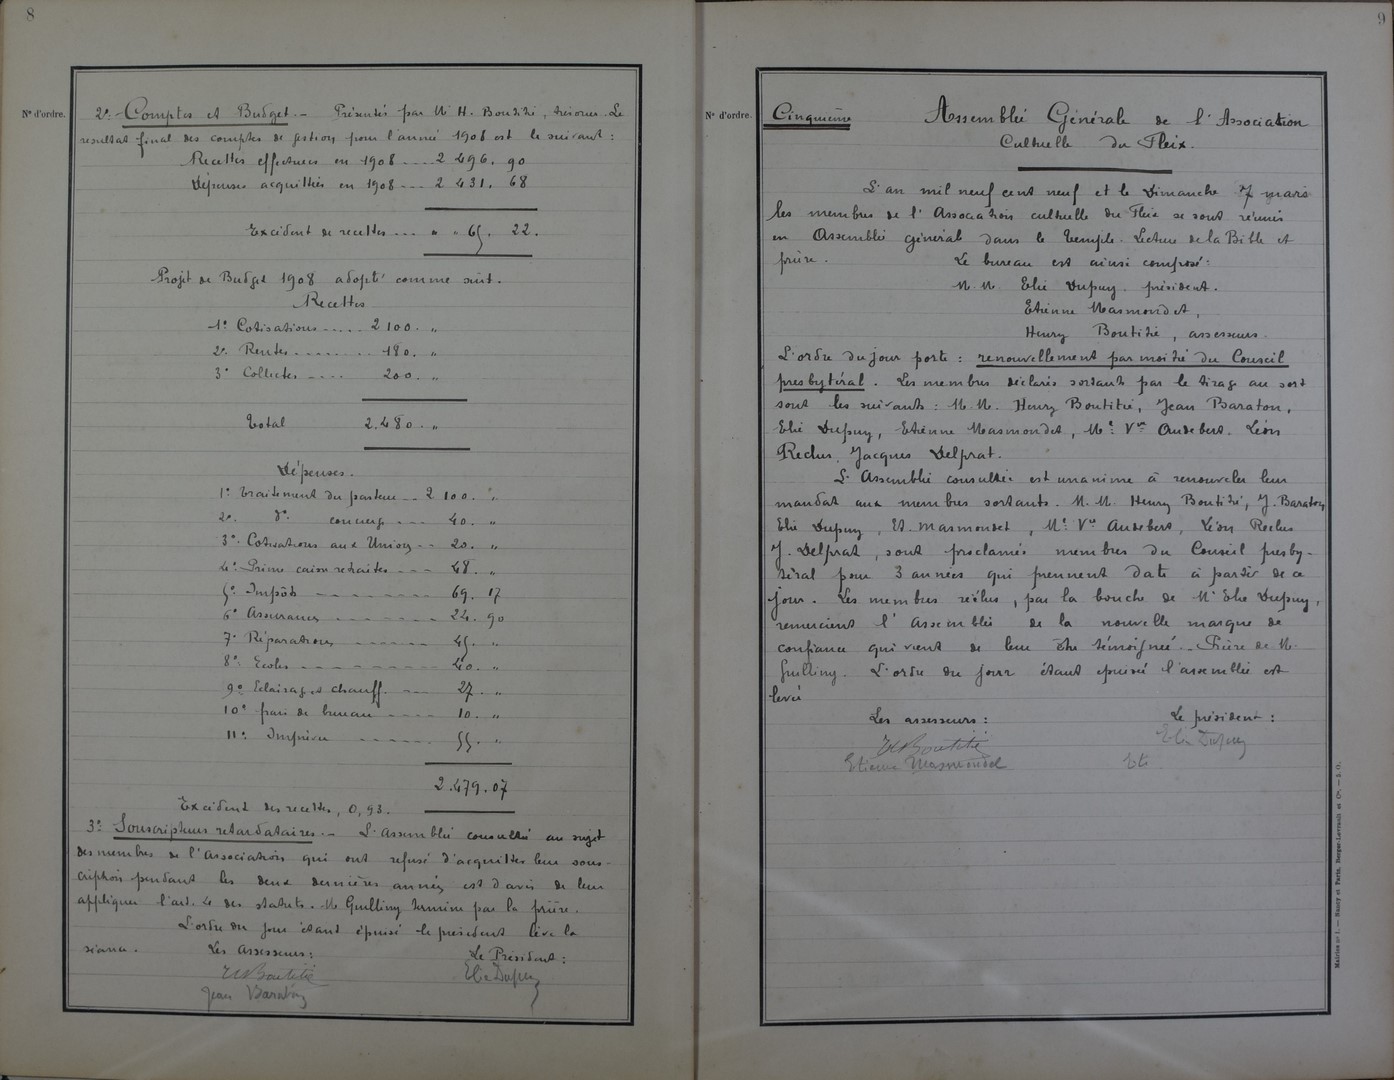 8
N° d'ordre.
2°. Comptes et Budget. — Présentés par M. H. Boutitié, trésorier. Le
resultat final des comptes de gestion pour l'année 1908 est le suivant :
Recettes effectuées en 1908 .... 2 496. 90
Dépenses acquittées en 1908 --- 2 431. 68
Excédent de recettes --- " " 65. 22.
Projet de Budget 1908 adopté comme suit.
Recettes
1° Cotisations ..... 2 100. "
2°. Rentes ....... 180. "
3° Collectes .... 200. "
Total 2.480. "
Dépenses.
1° Traitement du pasteur -- 2 100. "
2°. d° concierge --- 40. "
3°. Cotisations aux Unions -- 20. "
4° Prime caisse retraites --- 48. "
5° Impôts -------- 69. 17
6° Assurances ------ 24. 90
7° Réparations ------ 45. "
8° Ecoles --------- 40. "
9° Eclairage et chauff. --- 27. "
10° frais de bureau ---- 10. "
11° Imprévu ------ 55. "
2.479.07
Excédent des recettes, 0,93.
3° Souscripteurs retardataires. — L'Assemblée consultée au sujet
des membres de l'Association qui ont refusé d'acquitter leur sous-
cription pendant les deux dernières années est d'avis de leur
appliquer l'art. 4 des statuts. M. Guelling termine par la prière.
L'ordre du jour étant épuisé le président lève la
séance. Les Assesseurs : Le Président :
H Boutitié Elie Dupuy
Jean Baraton
9
N° d'ordre.
Cinquième Assemblée Générale de l'Association
Cultuelle du Fleix.
L'an mil neuf cent neuf et le Dimanche 7 mars
les membres de l'Association cultuelle du Fleix se sont réunis
en Assemblée générale dans le temple. Lecture de la Bible et
prière. Le bureau est ainsi composé :
M.M. Elie Dupuy. président.
Etienne Masmondet,
Henry Boutitié, assesseurs.
L'ordre du jour porte : renouvellement par moitié du Conseil
presbytéral. Les membres déclarés sortants par le tirage au sort
sont les suivants : M.M. Henry Boutitié, Jean Baraton,
Elie Dupuy, Etienne Masmondet, Me Vve Audebert. Léon
Reclus. Jacques Delprat.
L'Assemblée consultée est unanime à renouveler leur
mandat aux membres sortants. M.M. Henry Boutitié, J. Baraton,
Elie Dupuy, Et. Masmondet, Me Vve Audebert, Léon Reclus
J. Delprat, sont proclamés membres du Conseil presby-
téral pour 3 années qui prennent date à partir de ce
jour. Les membres réélus, par la bouche de Mr Elie Dupuy,
remercient l'assemblée de la nouvelle marque de
confiance qui vient de leur être témoignée. — Prière de M.
Guelling. L'ordre du jour étant épuisé l'assemblée est
levée
Les assesseurs : Le président :
H Boutitié Elie Dupuy
Etienne Masmondet Eli
Mairies n° 1. — Nancy et Paris, Berger-Levrault et Cie. — S. O.